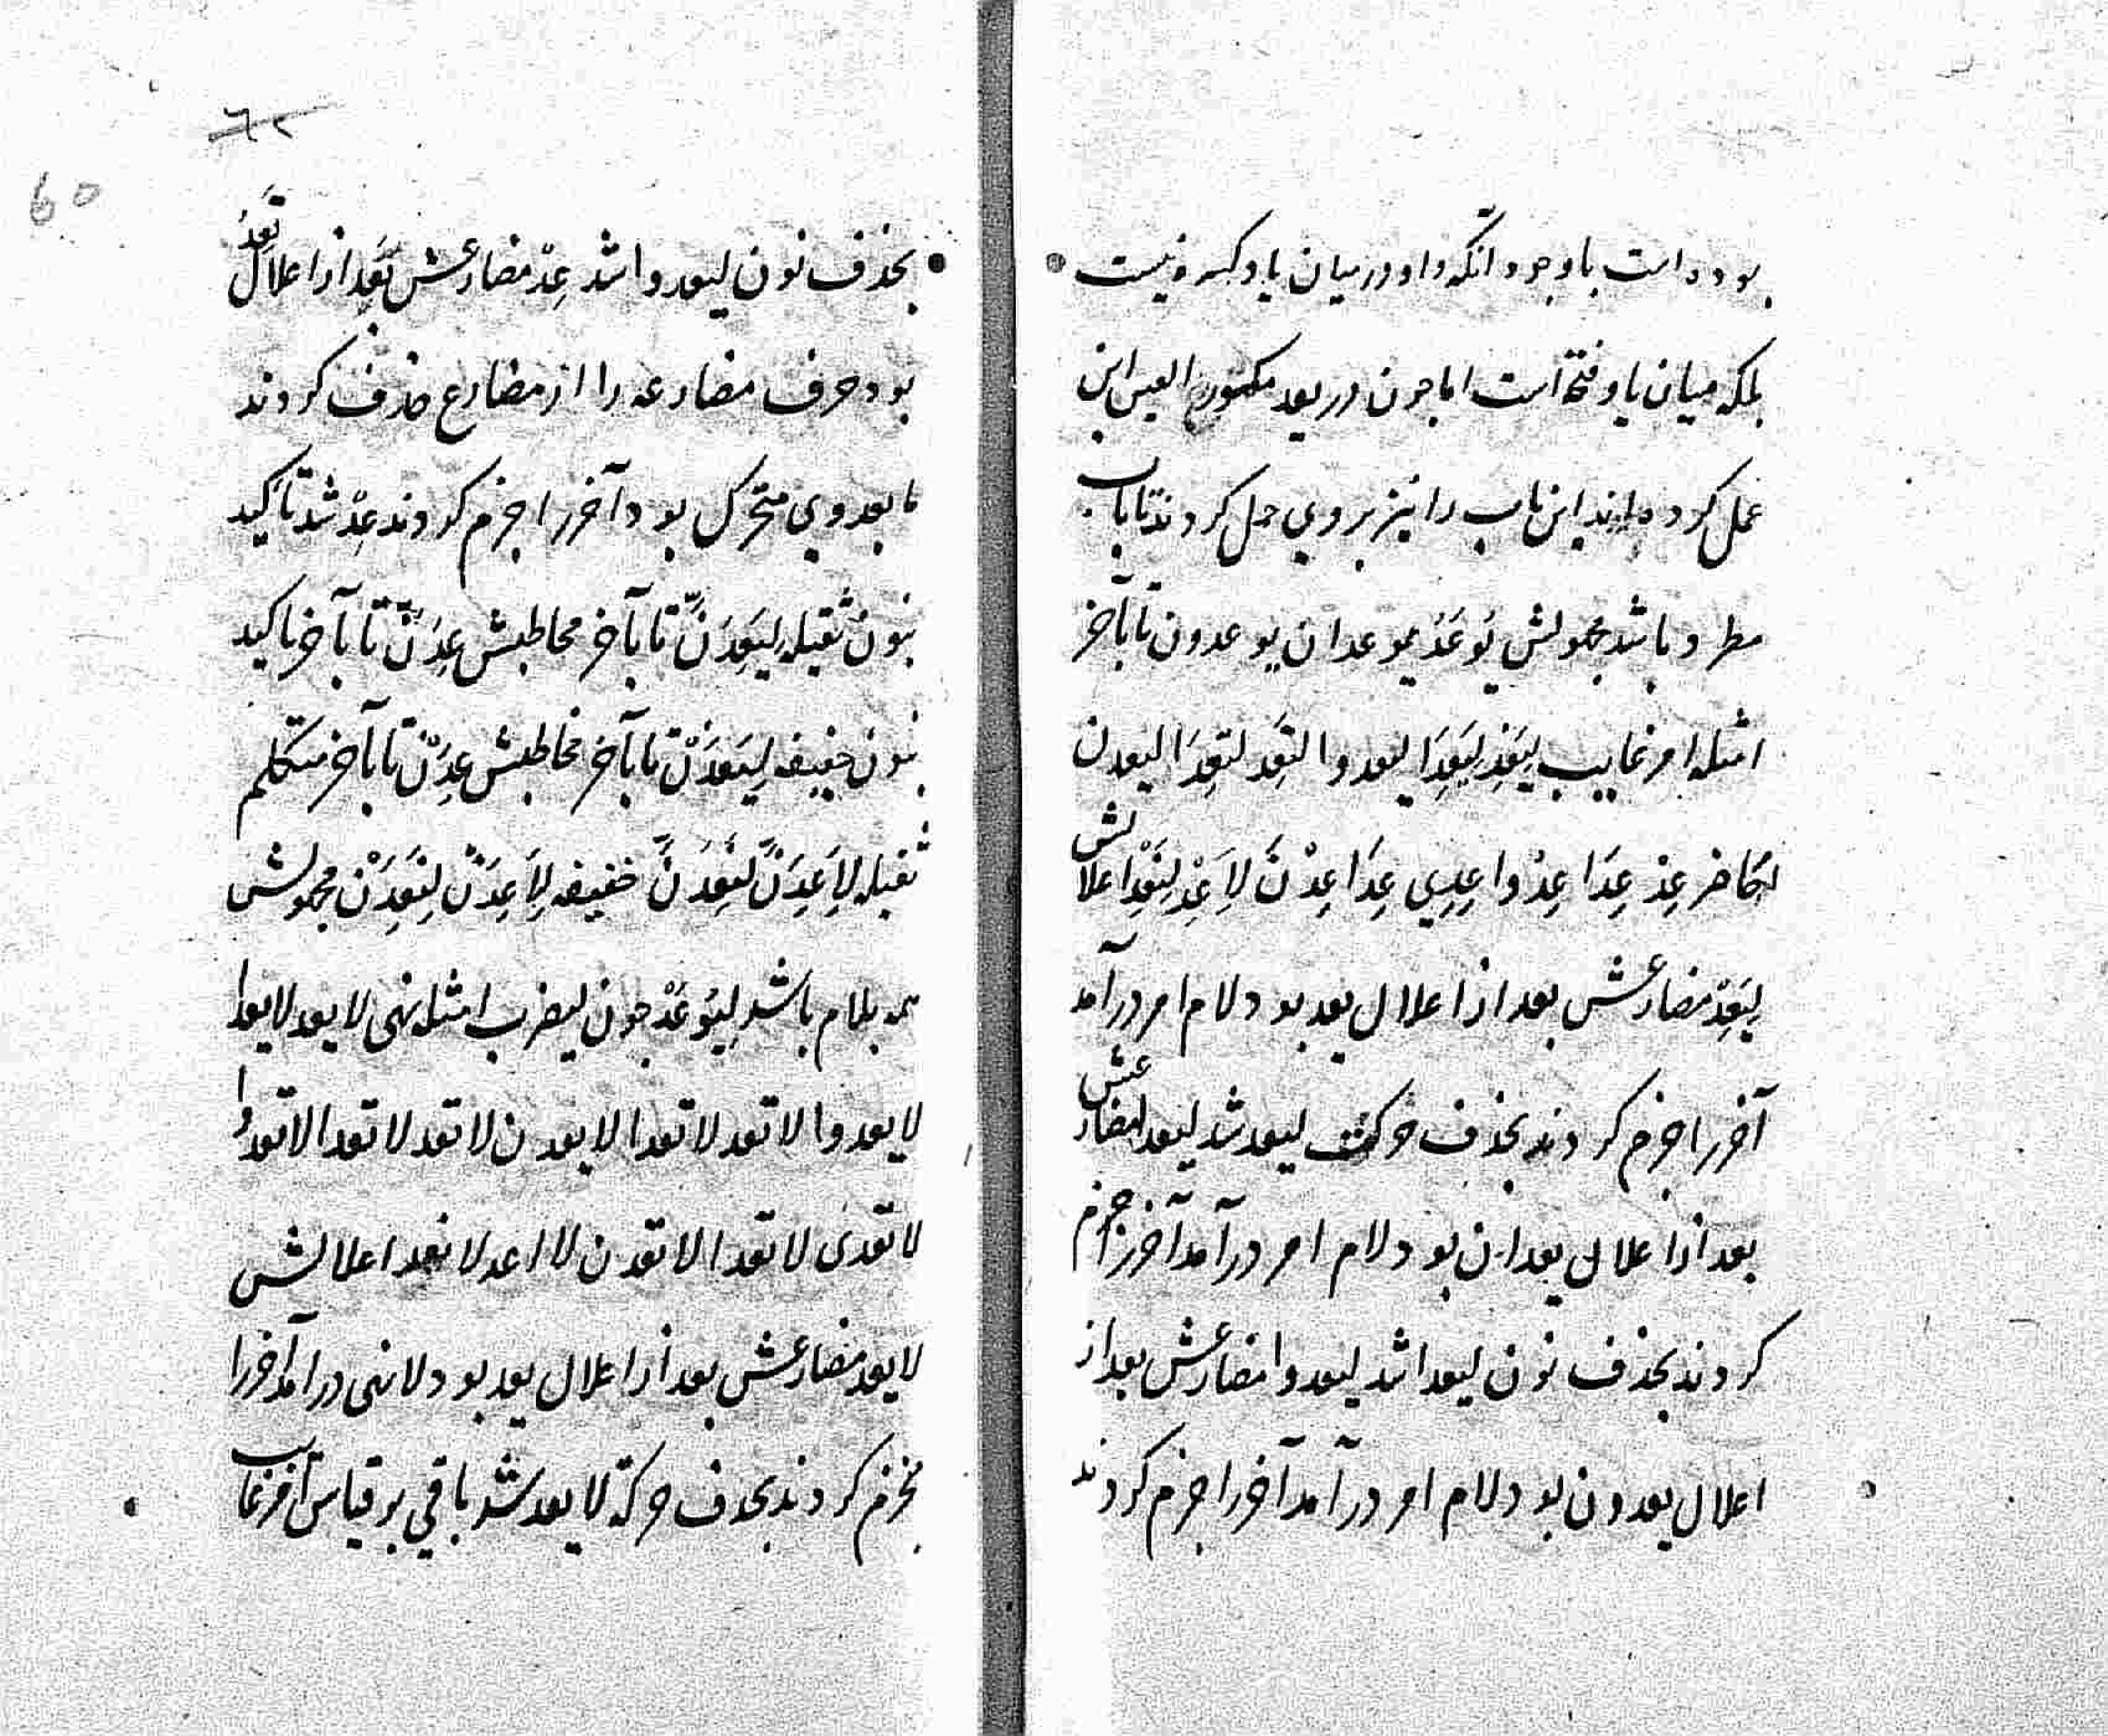 بوده است باوجود آنکه واو در میان یا و کسره نیست
بلکه میان یا و فتحه است اما چون در یعد مکسور العین این
عمل کرده اند این باب را نیز بروی حمل کردند تا باب
مطرد باشد مجهولش یُوعَدُ یوعدان یوعدون تا بآخر
امثله امر غایب لِیَعِدْ لِیَعِدَا لیعدوا لِتَعِد لِتَعِدَا لیعدن
حاضر عِدْ عِدَا عِدُوا عِدِی عِدَا عِدْنَ لِاَعِدْ لِنَعِدْ اعلالش
لِیَعِدْ مضارعش بعد از اعلال یعد بود لام امر درآمد
آخر را جزم کردند بحذف حرکت لیعد شد لیعدا مضارعش
بعد از اعلال یعدان بود لام امر درآمد آخر را جزم
کردند بحذف نون لیعدا شد لیعدوا مضارعش بعد از
اعلال یعدون بود لام امر درآمد آخر را جزم کردند
٦٢
60
بحذف نون لیعدوا شد عِدْ مضارعش تَعِدُ از اعلال تَعِدُ
بود حرف مضارعه را از مضارع حذف کردند
ما بعد وی متحرک بود آخر را جزم کردند عِدْ شد تاکید
بنون ثقیله لِیَعِدَنَّ تا بآخر مخاطبش عِدَنَّ تا بآخر تاکید
بنون خفیفه لِیَعِدَنْ تا بآخر مخاطبش عِدَنْ تا بآخر متکلم
ثقیله لِاَعِدَنَّ لِنَعِدَنَّ خفیفه لِاَعِدَنْ لِنَعِدَنْ مجهولش
همه بلام باشد لِیُوعَدْ چون لیضرب امثله نهی لا یعد لا یعدا
لا یعدوا لا تعد لا تعدا لا یعدن لا تعد لا تعدا لا تعدوا
لا تعدی لا تعدا لا تعدن لا اعد لا نعد اعلالش
لا یعد مضارعش بعد از اعلال یعد بود لا نهی درآمد آخر را
بجزم کردند بحذف حرکة لا یعد شد باقی بر قیاس امر غایب